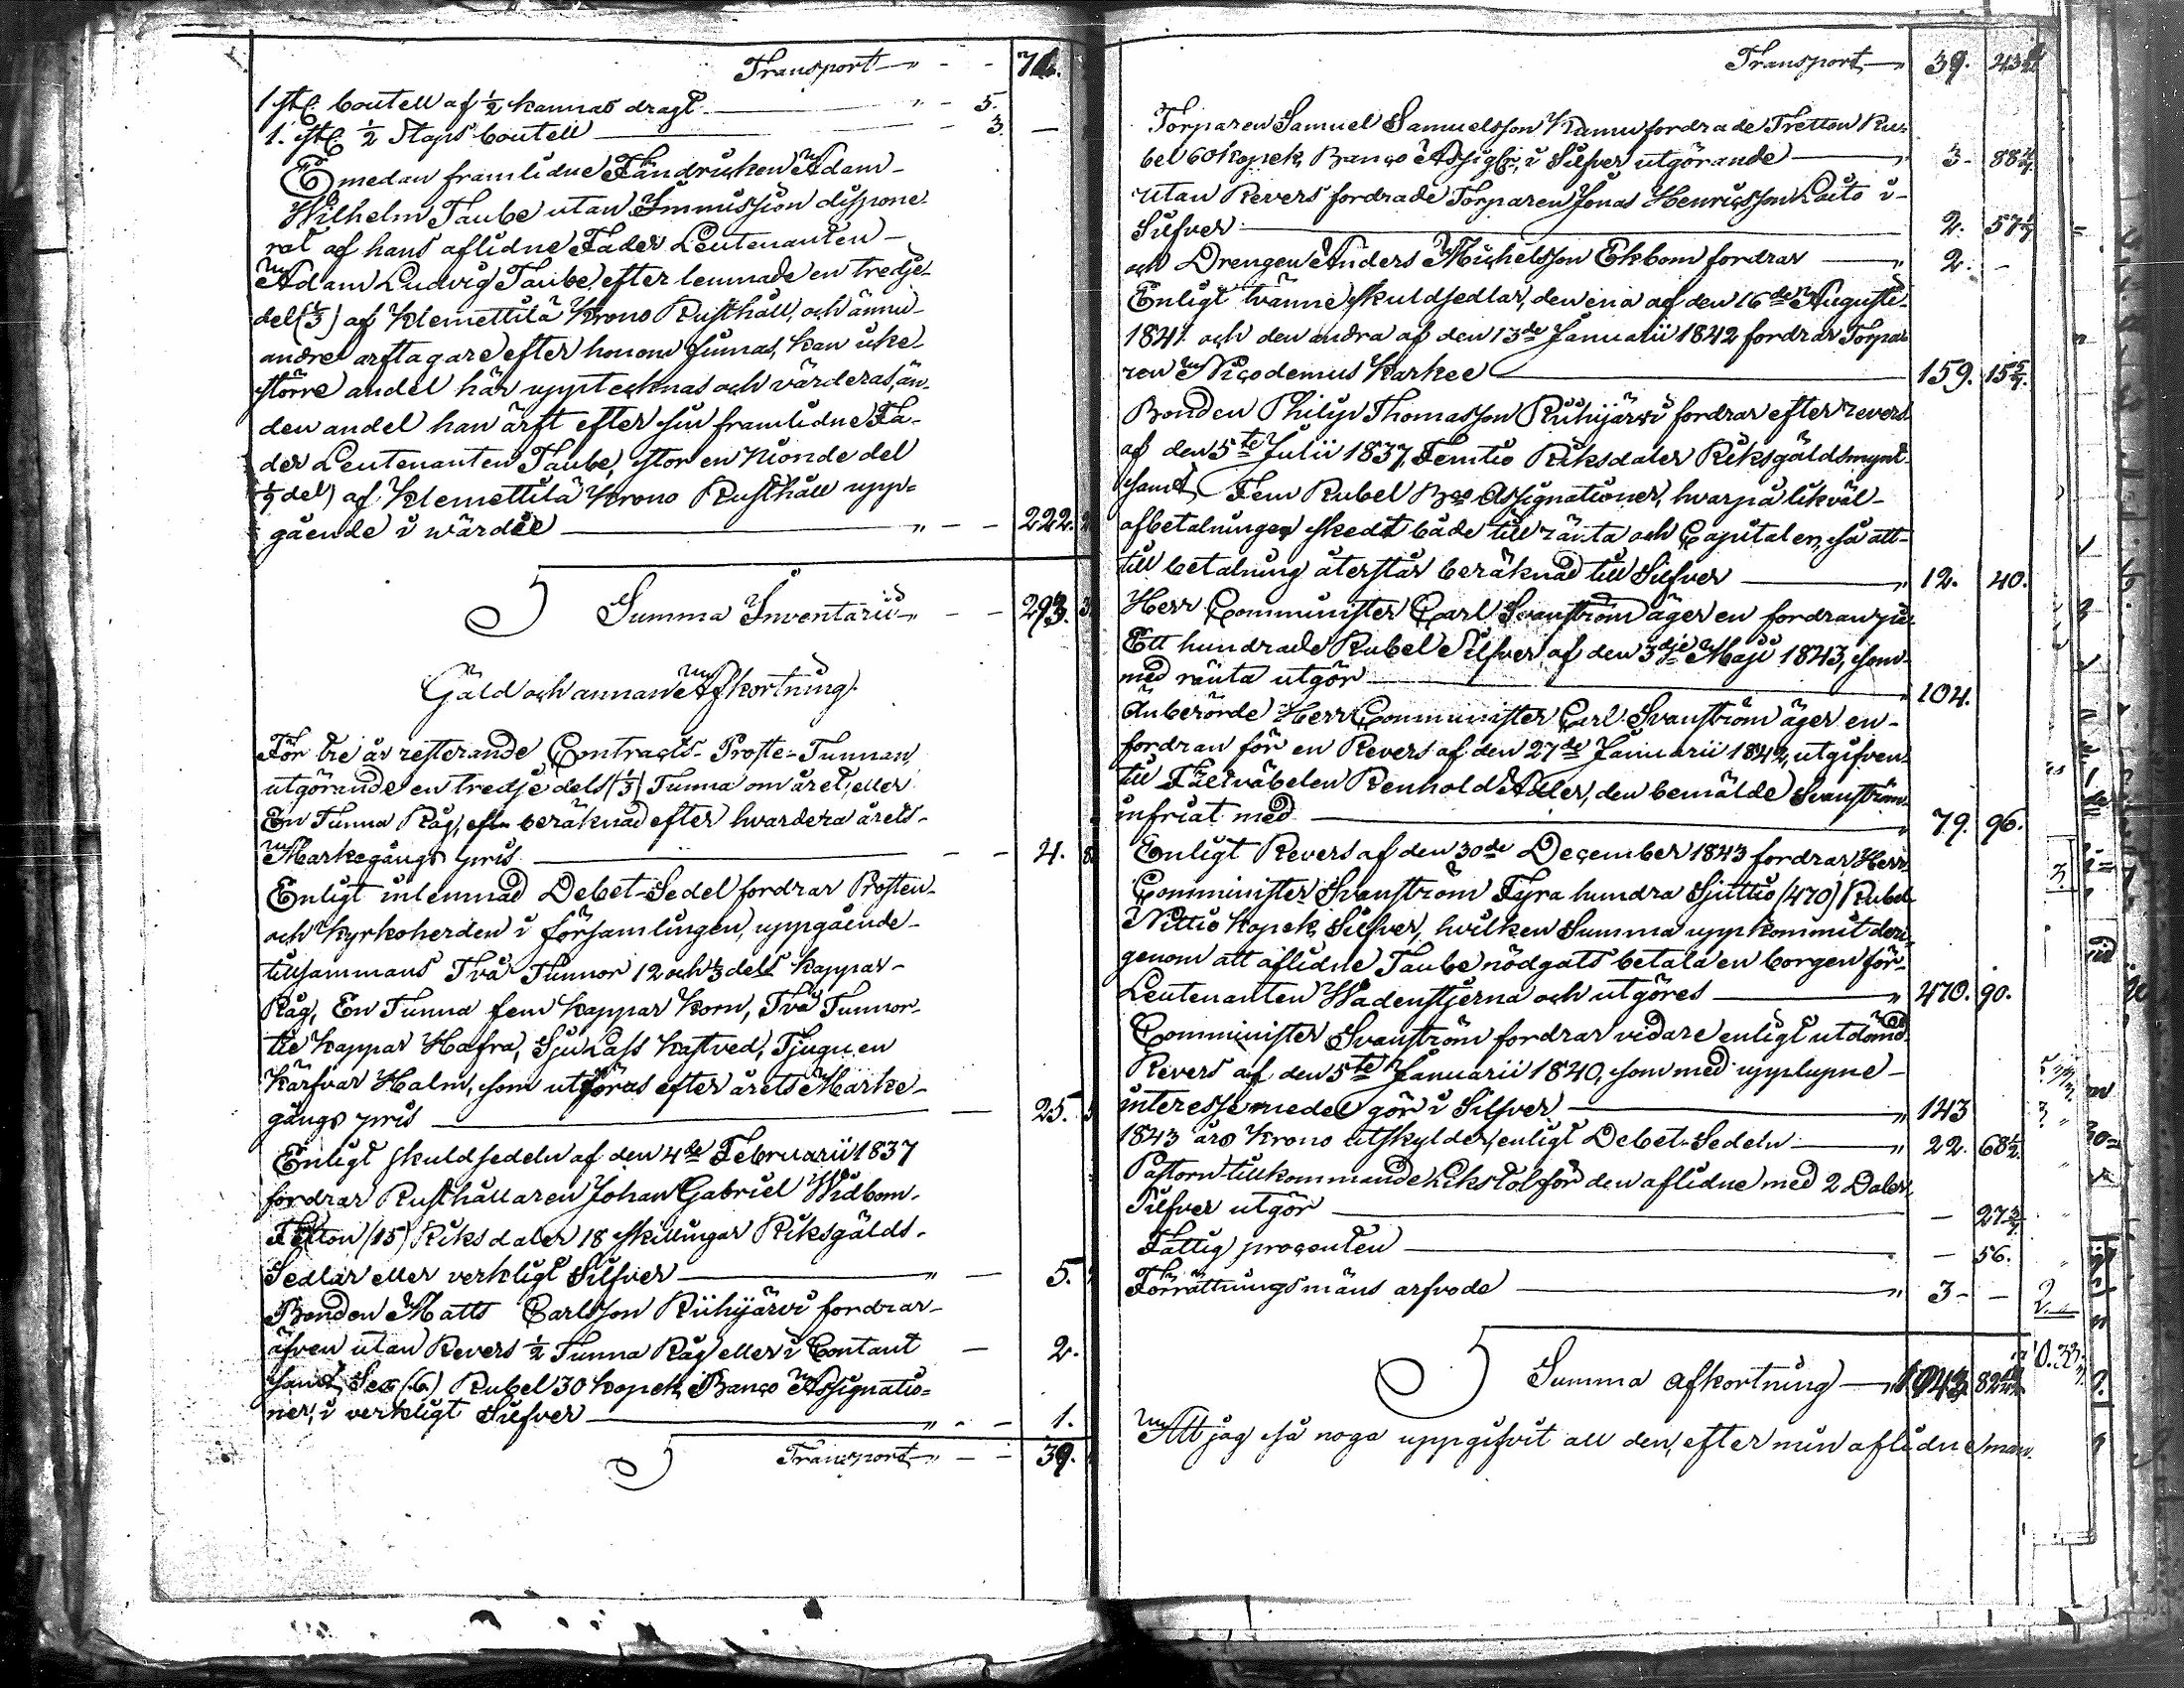 Transport " - - 71.
1 st. boutell af 1/2 kannas dragt " - 5.
1. st. 1/2 Stops boutell - 3. —
Emedan framlidne Fändricken Adam
Wilhelm Taube utan Immission dispone-
rat af hans aflidne Fader Leutenanten
Adam Ludvig Taube, efter lemnade en tredje-
del (1/3) af Klemettilä Krono Rusthåll, och ännu
andre arftagare efter honom finnas, kan icke
större andel här upptecknas och värderas, än
den andel han ärft efter sin framlidne Fa-
der Leutenanten Taube, stor en Niondedel
1/9 del) af Klemettilä Krono Rusthåll upp-
gående i wärde " - - 222.
Summa Inventarii " - - 293.
Gäld och annan Afkortning.
För tre år resterande Contracts-Proste-Tunnan,
utgörande en tredje dels (1/3) Tunna om året, eller
En Tunna Råg, beräknad efter hvardera årets
Markegångs pris - - 4.
Enligt inlemnad Debet-Sedel fordrar Prosten
och Kyrkoherden i församlingen, uppgående
tillsammans Två Tunnor 12 och 1/3 dels kappar
Råg, En Tunna fem kappar Korn, Två Tunnor
tie kappar Hafra, Sju Lass Kastved, Tjuguen
Kärfvar Halm, som utföras efter årets Marke-
gångs pris — 25.
Enligt skuldsedeln af den 4de Februarii 1837
fordrar Rusthållaren Johan Gabriel Widbom
Femton (15) Riksdaler 18 skillingar Riksgälds
Sedlar eller verkligt Silfver " — 5.
Bonden Matts Carlsson Riihijärvi fordrar
äfven utan Revers 1/2 Tunna Råg eller i Contant — 2.
samt Sex (6) Rubel 30 kopek Banco Assignatio-
ner, i verkligt Silfver " - - 1.
Transport " - - 39.
Transport " 39. 43
Torparen Samuel Samuelsson Kamu fordrade Tretton Ru-
bel 60 kopek Banco Assigr, i Silfver utgörande " 3 - 88 4/7.
utan Revers fordrade Torparen Jonas Henricsson Laito i
Silfver 2. 57 1/7
och Drengen Anders Michelsson Ekbom fordrar " 2. -
Enligt tvänne skuldsedlar, den ena af den 16de Augusti
1841 och den andra af den 13de Januarii 1842 fordrar Torpa-
ren Nicodemus Karkee 159. 15 5/7.
Bonden Philip Thomasson Riihijärvi fordrar efter revers
af den 5te Julii 1837, Femtio Riksdaler Riksgäldsmynt
samt Fem Rubel Bco Assignationer, hvarpå likväl
afbetalningar skedt både till ränta och Capitalen, så att
till betalning återstår beräknad till Silfver " 12. 40.
Herr Comminister Carl Svanström äger en fordran på
Ett hundrade Rubel Silfver af den 3dje Maji 1843, som
med ränta utgör " 104.
Änberörde Herr Comminister Carl Svanström äger en
fordran för en Revers af den 27de Januarii 1842, utgifven
till Fältväbelen Renhold Adler, den bemälde Svanström
infriat med " 79. 96.
Enligt Revers af den 30de December 1843 fordrar Herr
Comminister Svanström Fyra hundra Sjuttio (470) Rubel
Nittio kopek Silfver, hvilken Summa uppkommit deri-
genom att aflidne Taube nödgats betala en borgen för
Leutenanten Wadenstjerna och utgöres " 470. 90.
Comminister Svanström fordrar vidare enligt utdömd
Revers af den 5te Januarii 1840, som med upplupne
interesse medel gör i Silfver " 143
1843 års Krono utskylder, enligt Debet-Sedeln " 22. 68 1/2.
Pastorn tillkommande Likstol för den aflidne med 2 Daler
Silfver utgör - 27 3/7
Fattig procenten - 56.
Förrättningsmäns arfvode " 3 - -
Summa afkortning " 1043 82
Att jag så noga uppgifvit all den, efter min aflidne man